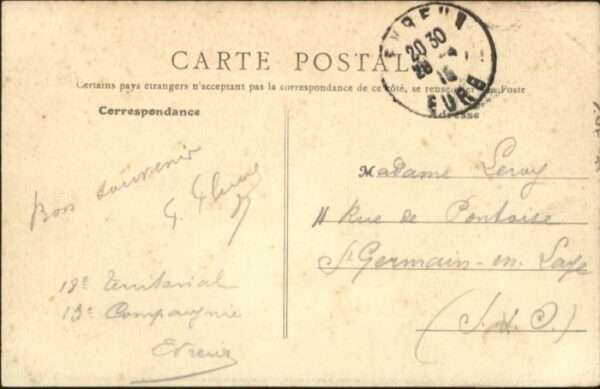 CARTE POSTAL
Certains pays étrangers n'acceptant pas la correspondance de ce côté, se rense Poste
Correspondance
Adresse
EVREUX
20 30
EURE
Bon souvenir
G.
18e Territorial
13e Compagnie
Evreux
Madame Leroy
11 Rue de Pontoise
St Germain-en-Laye
(S.&O.)